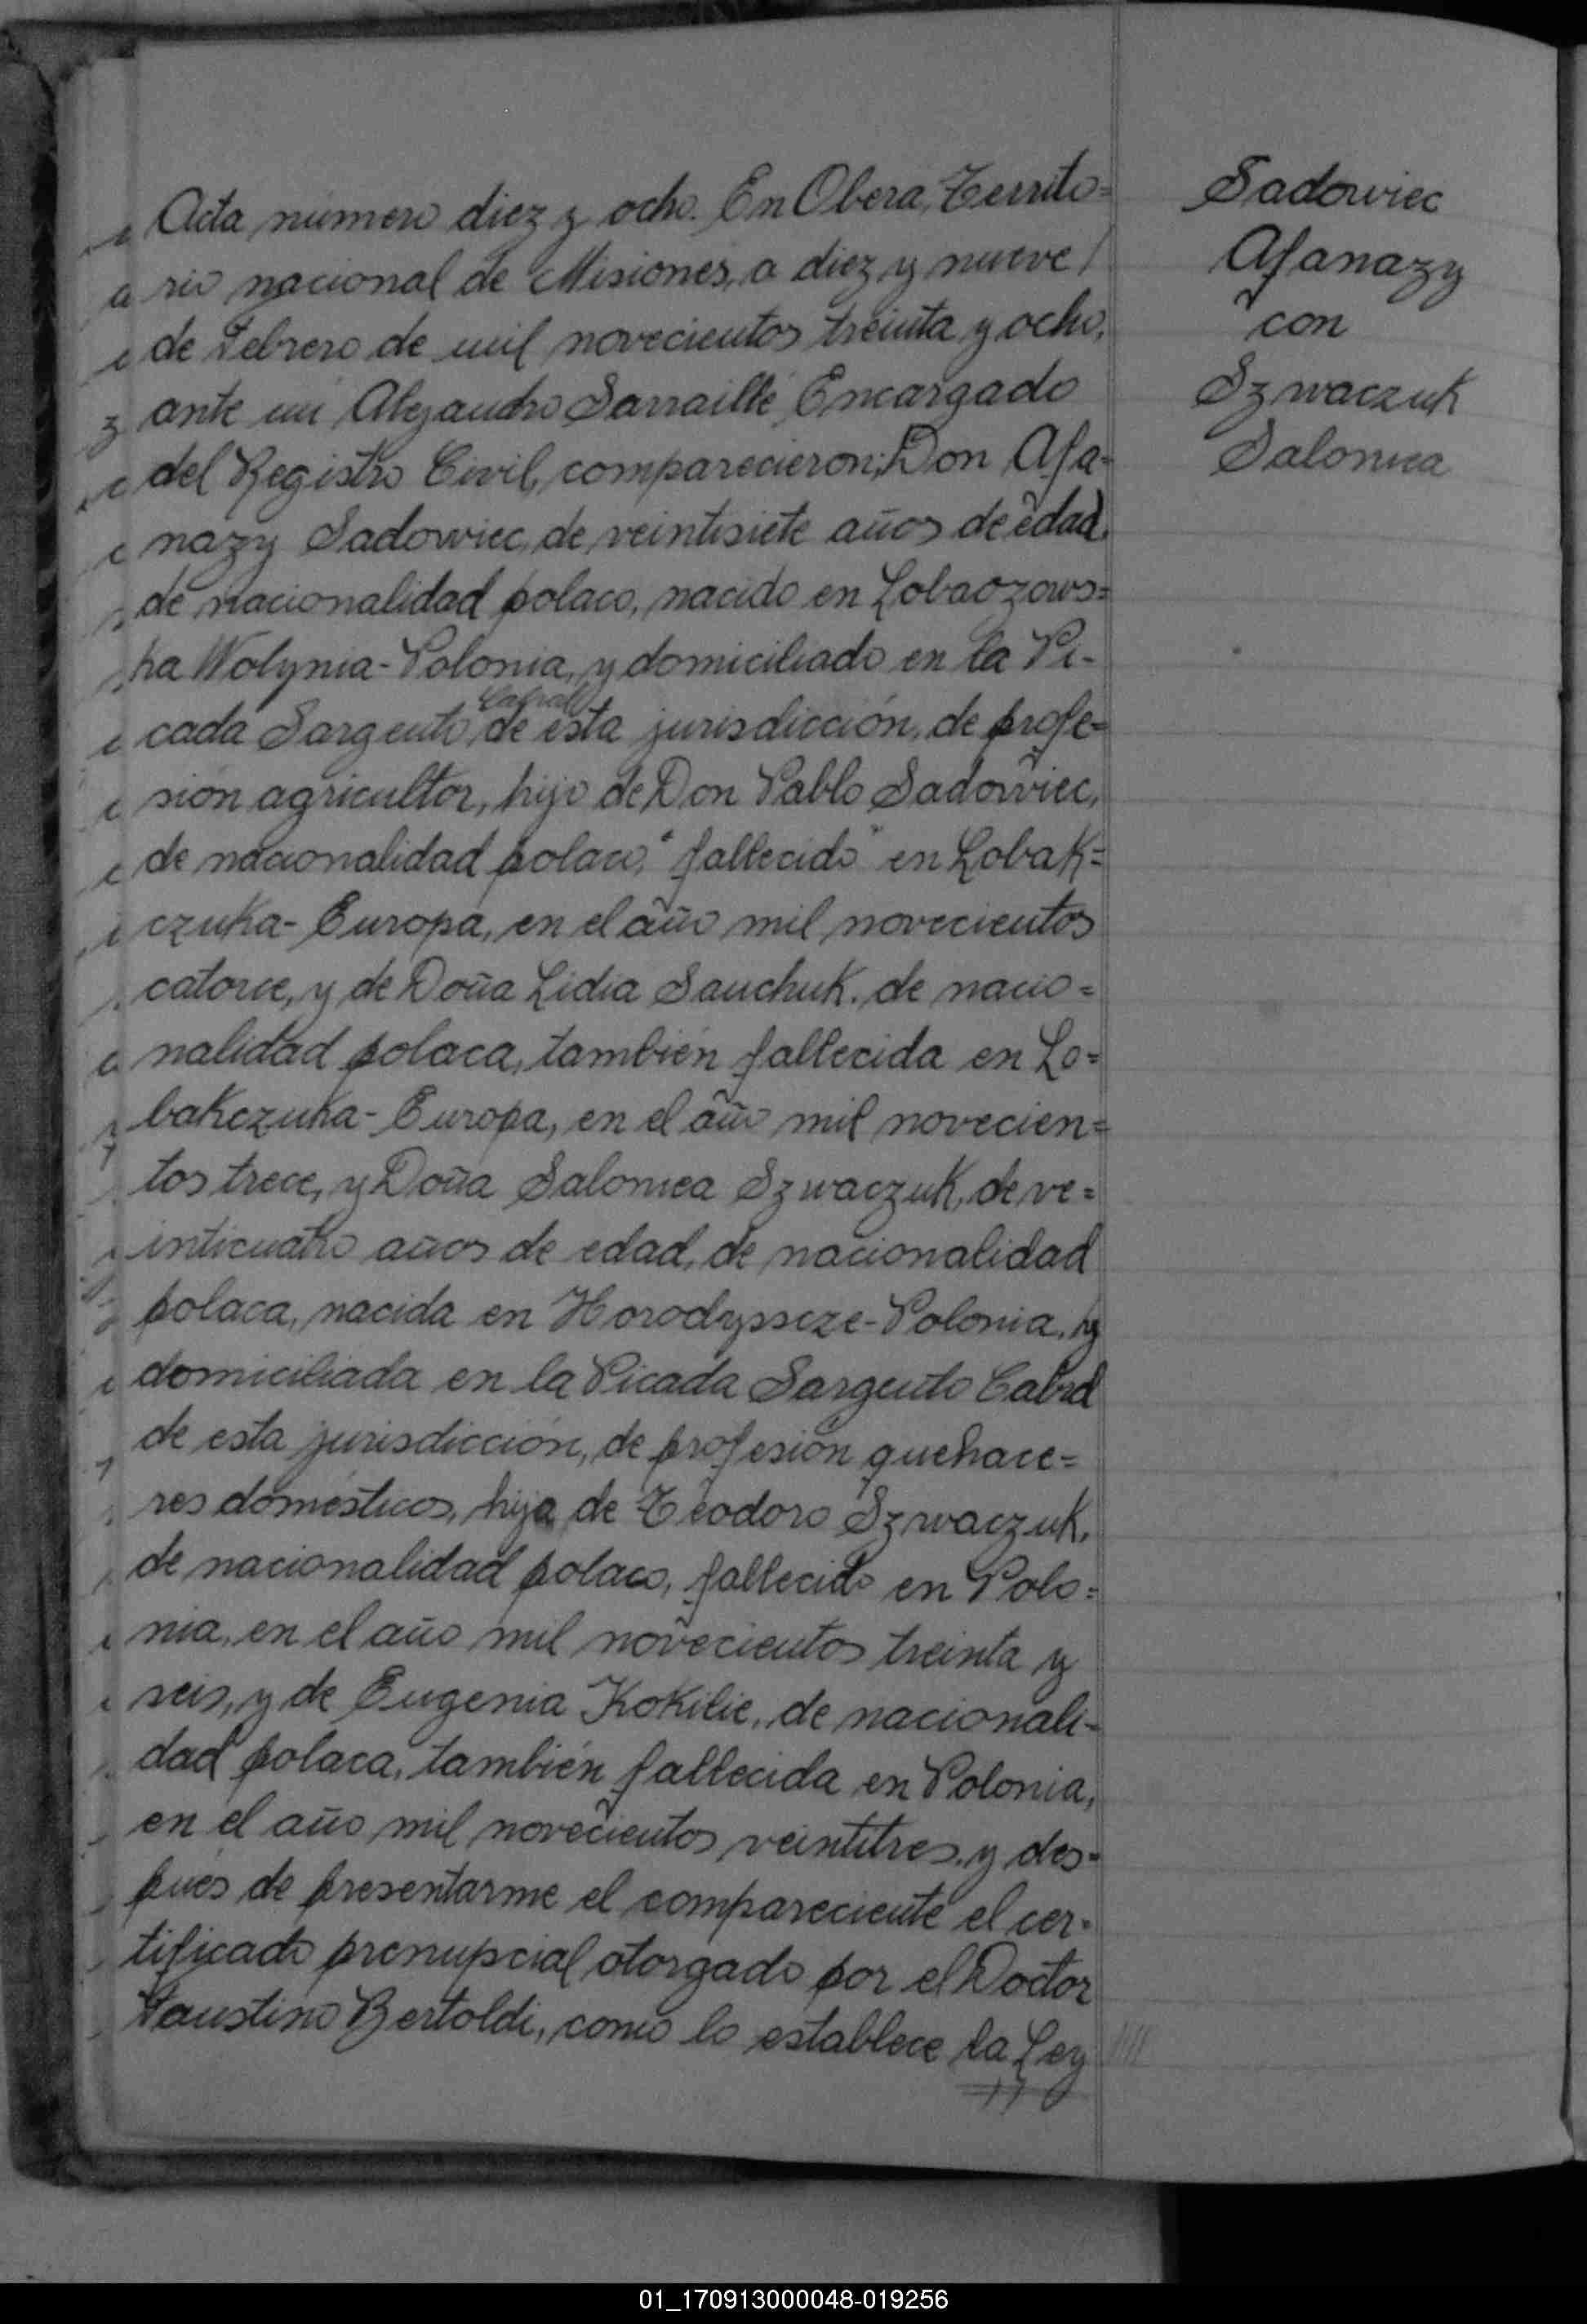 Acta número diez y ocho. En Obera, Territo=
rio nacional de Misiones, a diez y nueve
de Febrero de mil novecientos treinta y ocho,
ante mi Alejandro Sarraille, Encargado
del Registro Civil, comparecieron: Don Afa=
nazy Sadowiec, de veintisiete años de edad,
de nacionalidad polaco, nacido en Lobaozows=
ka Wolynia-Polonia, y domiciliado en la Pi-
Cabral
cada Sargento, de esta jurisdicción, de profe=
sión agricultor, hijo de Don Pablo Sadowiec,
de nacionalidad polaco, "fallecido" en Lobak=
czuka-Europa, en el año mil novecientos
catorce, y de Doña Lidia Sauchuk, de nacio=
nalidad polaca, también fallecida en Lo=
bakczuka-Europa, en el año mil novecien=
tos trece, y Doña Salomea Szwaczuk, de ve=
inticuatro años de edad, de nacionalidad
polaca, nacida en Horodysscze-Polonia, y
domiciliada en la Picada Sargento Cabral
de esta jurisdicción, de profesión quehace=
res domésticos, hija de Teodoro Szwaczuk,
de nacionalidad polaco, fallecido en Polo=
nia, en el año mil novecientos treinta y
seis, y de Eugenia Kokilie, de nacionali-
dad polaca, también fallecida en Polonia,
en el año mil novecientos veintitres, y des=
pués de presentarme el compareciente el cer-
tificado prenupcial otorgado por el Doctor
Faustino Bertoldi, como lo establece la Ley
Sadowiec
Afanazy
con
Szwaczuk
Salomea
01_170913000048-019256